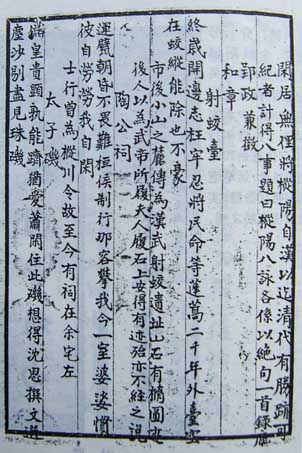 閒居無俚將樅陽自漢以迄清代有勝蹟可
紀者計得八事題曰樅陽八詠各係以絕句一首錄應
郢政兼徵
和章
射蛟臺
終歲開邊志枉牢忍將民命等蓬蒿二千年外臺空
在蛟縱能除也不豪
市後小山之麓傳為漢武射蛟遺址山石有橢圓夾
後人以為武帝所履夫人履石上安得有迹殆亦不經之說
陶公祠
運甓朝昏不畏難桓侯制行那容攀我今一室婆娑慣
彼自勞勞我自閑
士行曾為樅川令故至今有祠在余宅左
太子磯
滿皇貴顯孰能躋猶愛蕭閑住此磯想得沈思撰文選
塵沙剔盡見珠璣